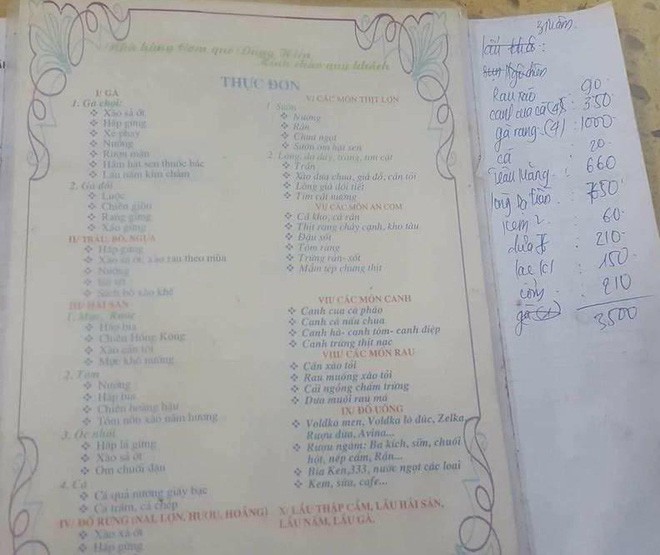 Nhà hàng Cơm quê Dũng Kiên
Kính chào quý khách
THỰC ĐƠN
I/ GÀ
1. Gà chọi:
Xáo sả ớt
Hấp gừng
Xé phay
Nướng
Rượu mận
Hầm hạt sen thuốc bắc
Lẩu nấm kim châm
2. Gà đồi
Luộc
Chiên giòn
Rang gừng
Xáo gừng
II/ TRÂU, BÒ, NGỰA
Hấp gừng
Xào sả ớt, xào rau theo mùa
Nướng
Sốt
Sách bò xào khế
III/ HẢI SẢN
1. Mực, Ruốc
Hấp bia
Chiên Hồng Kông
Xào cần tỏi
Mực khô nướng
2. Tôm
Nướng
Hấp bia
Chiên hoàng hậu
Tôm nõn xào nấm hương
3. Ốc nhồi
Hấp lá gừng
Xào sả ớt
Om chuối đậu
4. Cá
Cá quả nướng giấy bạc
Cá trắm, cá chép
IV/ ĐỒ RỪNG (NAI, LỢN, HƯƠU, HOẴNG)
Xào xả ớt
Hấp gừng
V/ CÁC MÓN THỊT LỢN
1. Sườn
Nướng
Rán
Chua ngọt
Sườn om hạt sen
2. Lòng, dạ dày, tràng, tim cật
Trần
Xào dưa chua, giá đỗ, cần tỏi
Lòng già dồi tiết
Tim cật nướng
VI/ CÁC MÓN ĂN CƠM
Cá kho, cá rán
Thịt rang cháy cạnh, kho tàu
Đậu xốt
Tôm rang
Trứng rán- xốt
Mắm tép chưng thịt
VII/ CÁC MÓN CANH
Canh cua cà pháo
Canh cá nấu chua
Canh hà- canh tôm- canh diếp
Canh trứng thịt nạc
VIII/ CÁC MÓN RAU
Cần xào tỏi
Rau muống xào tỏi
Cải ngồng chấm trứng
Dưa muối rau má
IX/ ĐỒ UỐNG
Voldka men, Voldka lò đúc, Zelka,
Rượu dừa, Avina...
Rượu ngâm: Ba kích, sim, chuối
hột, nếp cẩm, Rắn...
Bia Ken,333, nước ngọt các loại
Kem, sữa, cafe...
X/ LẨU THẬP CẨM, LẨU HẢI SẢN,
LẨU NẤM, LẨU GÀ.
3 mâm
Rau xào 90
canh cua cà 350
gà rang (4) 1000
cá 20
: 660
: 750
kem 2 : 60
dưa : 210
lạc (c) : 150
cơm : 210
gà
3500